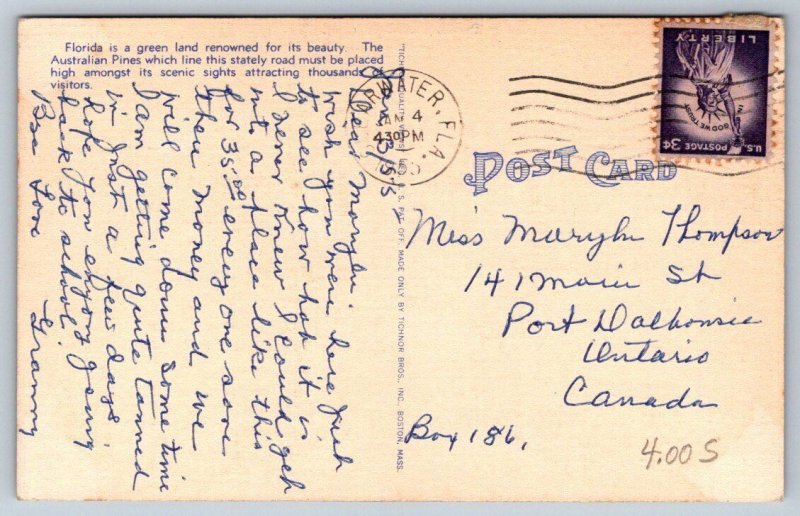 Florida is a green land renowned for its beauty. The
Australian Pines which line this stately road must be placed
high amongst its scenic sights attracting thousands of
visitors.
Jan 3/55
Dear Maryln.
wish you were here just
to see how hot it is
I never knew I could get
into a place like this
for 35.00 everyone save
their money and we
will come down some time
I am getting quite tanned
in just a few days
hope you enjoy going
back to school.
Bye Love Granny
"TICH QUALITY VIEWS" REG. U. S. PAT. OFF. MADE ONLY BY TICHNOR BROS., INC., BOSTON, MASS.
CLEARWATER, FLA.
JAN 4
430 PM
POST CARD
LIBERTY
IN GOD WE TRUST
U.S. POSTAGE 3¢
Miss Maryln Thompson
141 Main St
Port Dalhousie
Ontario
Canada
Box 186,
4.00 S